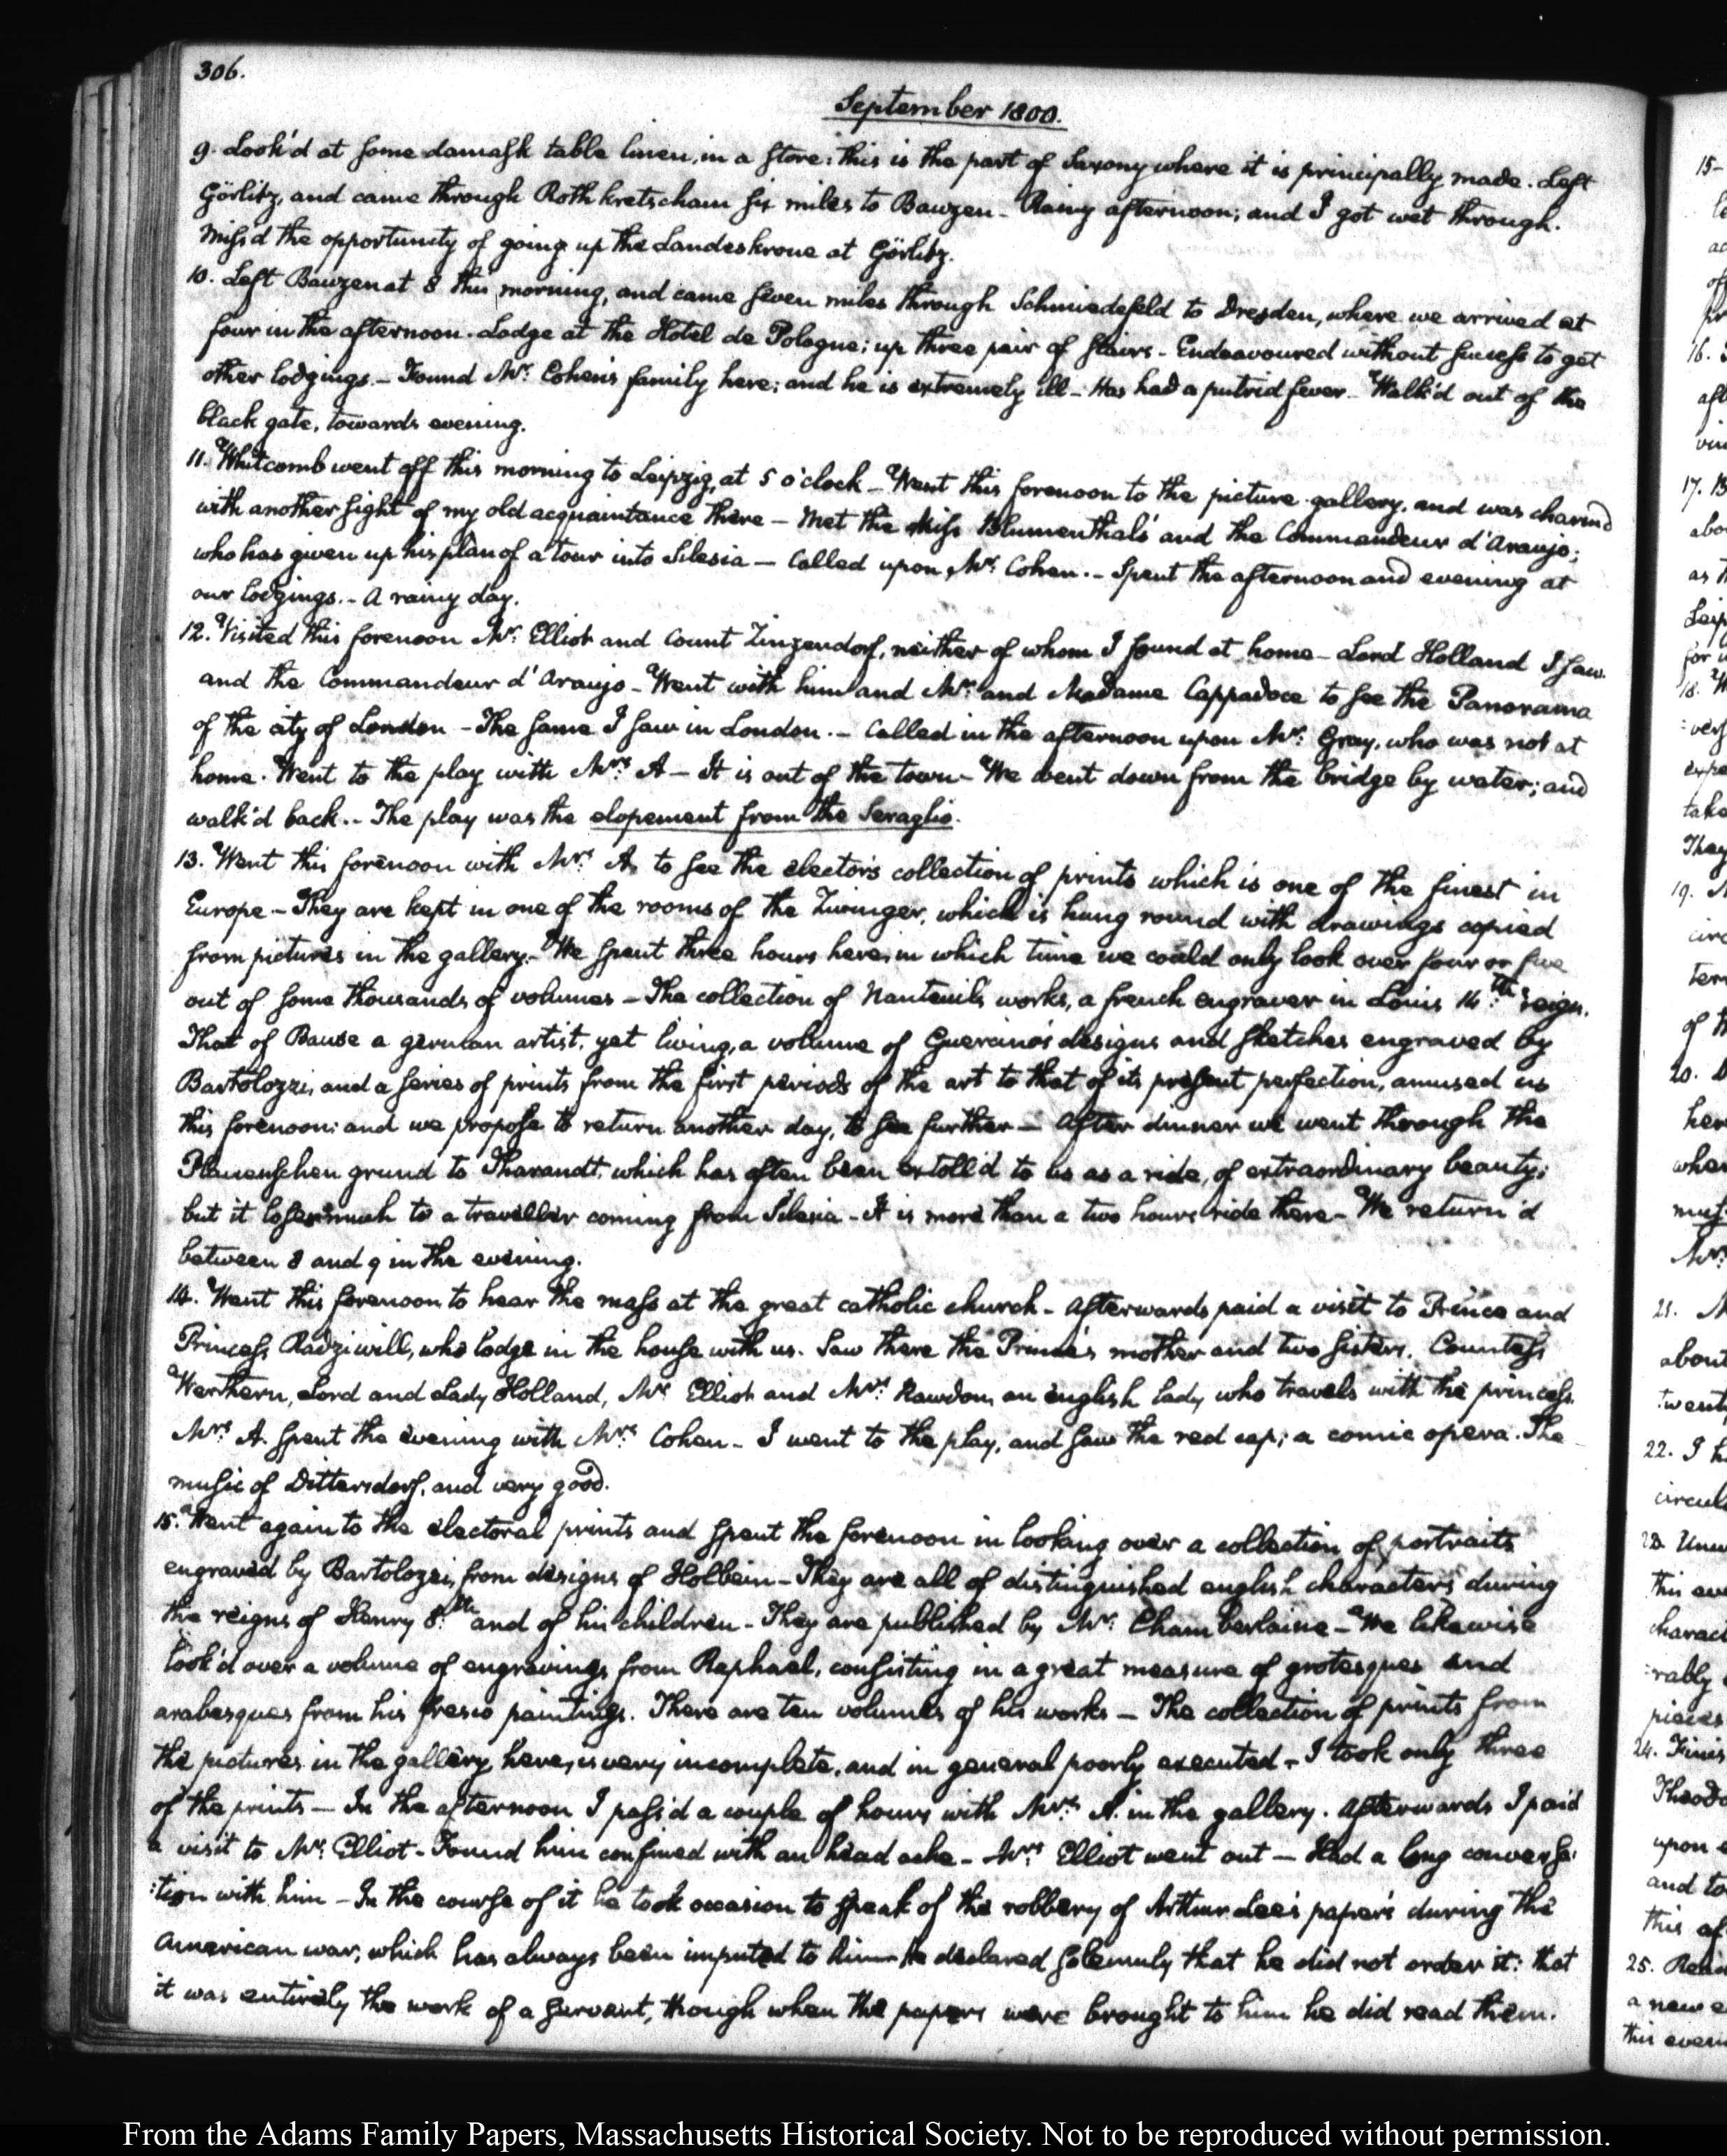 306.
September 1800.
9. Look'd at some damask table linen, in a store: this is the part of Saxony where it is principally made. Left
Görlitz, and came through Rothkretscham six miles to Bauzen - Rainy afternoon; and I got wet through.
Miss'd the opportunity of going up the Landeskrone at Görlitz.
10. Left Bauzen at 8 this morning, and came seven miles through Schmiedefeld to Dresden, where we arrived at
four in the afternoon. Lodge at the Hotel de Pologne; up three pair of stairs - Endeavoured without success to get
other lodgings. - Found Mr. Cohen's family here; and he is extremely ill - Has had a putrid fever - Walk'd out of the
black gate, towards evening.
11. Whitcomb went off this morning to Leipzig, at 5 o'clock - Went this forenoon to the picture gallery, and was charm'd
with another sight of my old acquaintance there - Met the Miss Blumenthals' and the Commandeur d'Araujo;
who has given up his plan of a tour into Silesia - Called upon Mr. Cohen. - Spent the afternoon and evening at
our lodgings. - A rainy day.
12. Visited this forenoon Mr. Elliot and Count Zinzendorf, neither of whom I found at home - Lord Holland I saw.
and the Commandeur d'Araujo - Went with him and Mr. and Madame Cappadoce to see the Panorama
of the city of London - The same I saw in London. - Called in the afternoon upon Mr. Gray, who was not at
home. Went to the play with Mrs. A - It is out of the town - We went down from the bridge by water; and
walk'd back. - The play was the elopement from the Seraglio.
13. Went this forenoon with Mrs. A. to see the elector's collection of prints which is one of the finest in
Europe - They are kept in one of the rooms of the Zwinger, which is hung round with drawings copied
from pictures in the gallery. - We spent three hours here, in which time we could only look over four or five
out of some thousands of volumes - The collection of Nanteuil's works, a french engraver in Louis 14.th's reign.
That of Bause a german artist, yet living, a volume of Guercino's designs and sketches engraved by
Bartolozzi, and a series of prints from the first periods of the art to that of its present perfection, amused us
this forenoon: and we propose to return another day, to see further - After dinner we went through the
Plauenschen grund to Tharandt, which has often been extoll'd to us as a ride, of extraordinary beauty;
but it loses much to a traveller coming from Silesia - It is more than a two hours ride there - We return'd
between 8 and 9 in the evening.
14. Went this forenoon to hear the mass at the great catholic church - Afterwards paid a visit to Prince and
Princess Radziwill, who lodge in the house with us. Saw there the Prince's mother and two sisters, Countess
Werthern, Lord and Lady Holland, Mr. Elliot and Mrs. Rawdon, an english lady who travels with the princess.
Mrs. A. spent the evening with Mrs. Cohen - I went to the play, and saw the red cap; a comic opera. The
music of Dittersdorf, and very good.
15. Went again to the electoral prints and spent the forenoon in looking over a collection of portraits
engraved by Bartolozzi, from designs of Holbein - They are all of distinguished english characters during
the reigns of Henry 8.th and of his children - They are published by Mr. Chamberlaine - We likewise
look'd over a volume of engravings from Raphael, consisting in a great measure of grotesques and
arabesques from his fresco paintings. There are ten volumes of his works - The collection of prints from
the pictures in the gallery here, is very incomplete, and in general poorly executed - I took only three
of the prints - In the afternoon I pass'd a couple of hours with Mrs. A. in the gallery. Afterwards I paid
a visit to Mr. Elliot - Found him confined with an head ache - Mrs. Elliot went out - Had a long conversa:
:tion with him - In the course of it he took occasion to speak of the robbery of Arthur Lee's papers during the
American war, which has always been imputed to him - he declared solemnly that he did not order it: that
it was entirely the work of a servant, though when the papers were brought to him he did read them.
From the Adams Family Papers, Massachusetts Historical Society. Not to be reproduced without permission.